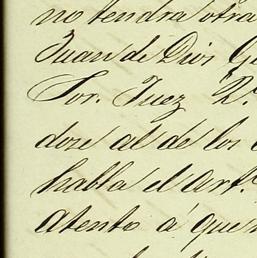 no tendra otra
Juan de Dios G
Sor. Juez R.
dose al de los
habla el Art.
Atento á que